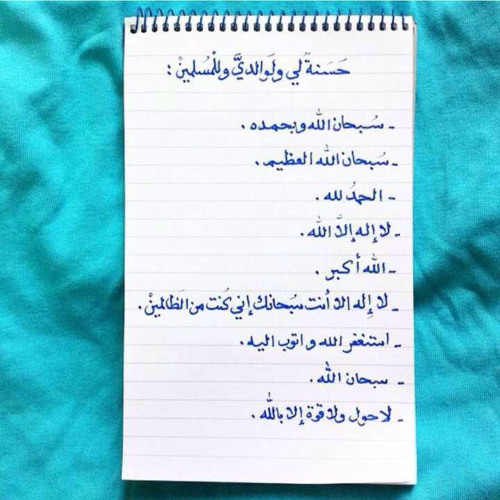 حَسَنةٌ لي ولوَالديَّ وللمُسلمينْ :
- سُبحان الله وبحمده .
- سُبحان الله العظيم .
- الحمدُ لله .
- لا إله إلاَّ الله .
- الله أكبر .
- لا إله الا أنت سُبحانك إني كُنت من الظالمينْ .
- استغفر الله و اتوب اليه .
- سبحان الله .
- لا حول ولا قوة إلا بالله .